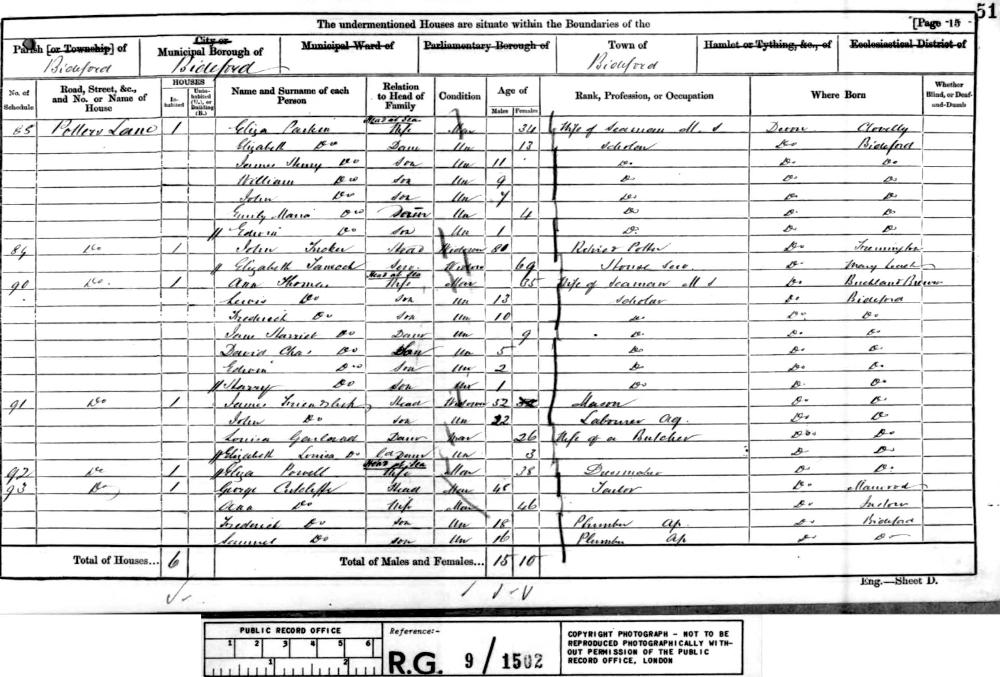 51
The undermentioned Houses are situate within the Boundaries of the [Page 15
Parish [or Township] of City or Municipal Borough of Municipal Ward of Parliamentary Borough of Town of Hamlet or Tything, &c., of Ecclesiastical District of
Bideford Bideford Bideford
No. of Schedule Road, Street, &c., and No. or Name of House HOUSES Inhabited Uninhabited (U.), or Building (B.) Name and Surname of each Person Relation to Head of Family Condition Age of Males Females Rank, Profession, or Occupation Where Born Whether Blind, or Deaf-and-Dumb
Head at Sea
85 Potters Lane 1 Eliza Parkin Wife Mar 34 Wife of Seaman M. S Devon Clovelly
Elizabeth Do Daur Un 13 Scholar Do Bideford
James Henry Do Son Un 11 Do Do Do
William Do Son Un 9 Do Do Do
John Do Son Un 7 Do Do Do
Emily Maria Do Daur Un 4 Do Do Do
Edwin Do Son Un 1 Do Do Do
Do 1 John Tucker Head Widower 80 Potter Do Fremington
Elizabeth Serv. Widow 69 House Serv Do
Head at Sea
90 Do 1 Ann Thomas Wife Mar Wife of Seaman M S Do Buckland Brewer
Lewis Do Son Un 13 Scholar Do Bideford
Frederick Do Son Un 10 Do Do Do
Jane Harriet Do Daur Un 9 Do Do Do
David Chas Do Son Un 5 Do Do Do
Edwin Do Son Un 2 Do Do Do
Harry Do Son Un 1 Do Do Do
91 Do 1 James Head Widower 52 Mason Do Do
John Do Son Un 22 Labourer Ag. Do Do
Louisa Garland Daur Mar 26 Wife of a Butcher Do Do
Elizabeth Louisa Do Daur Un 3 Do Do
Head at Sea
92 Do 1 Eliza Powell Wife Mar 38 Dressmaker Do Do
93 Do 1 George Cutcliffe Head Mar 48 Do Marwood
Ann Do Wife Mar 46 Do Instow
Frederick Do Son Un 18 Plumber Ap. Do Bideford
Samuel Do Son Un 16 Plumber Ap Do Do
Total of Houses... 6 Total of Males and Females... 15 10
Eng.—Sheet D.
PUBLIC RECORD OFFICE
1 2 3 4 5 6
1 2
Reference:-
R.G. 9/1502
COPYRIGHT PHOTOGRAPH - NOT TO BE
REPRODUCED PHOTOGRAPHICALLY WITH-
OUT PERMISSION OF THE PUBLIC
RECORD OFFICE, LONDON